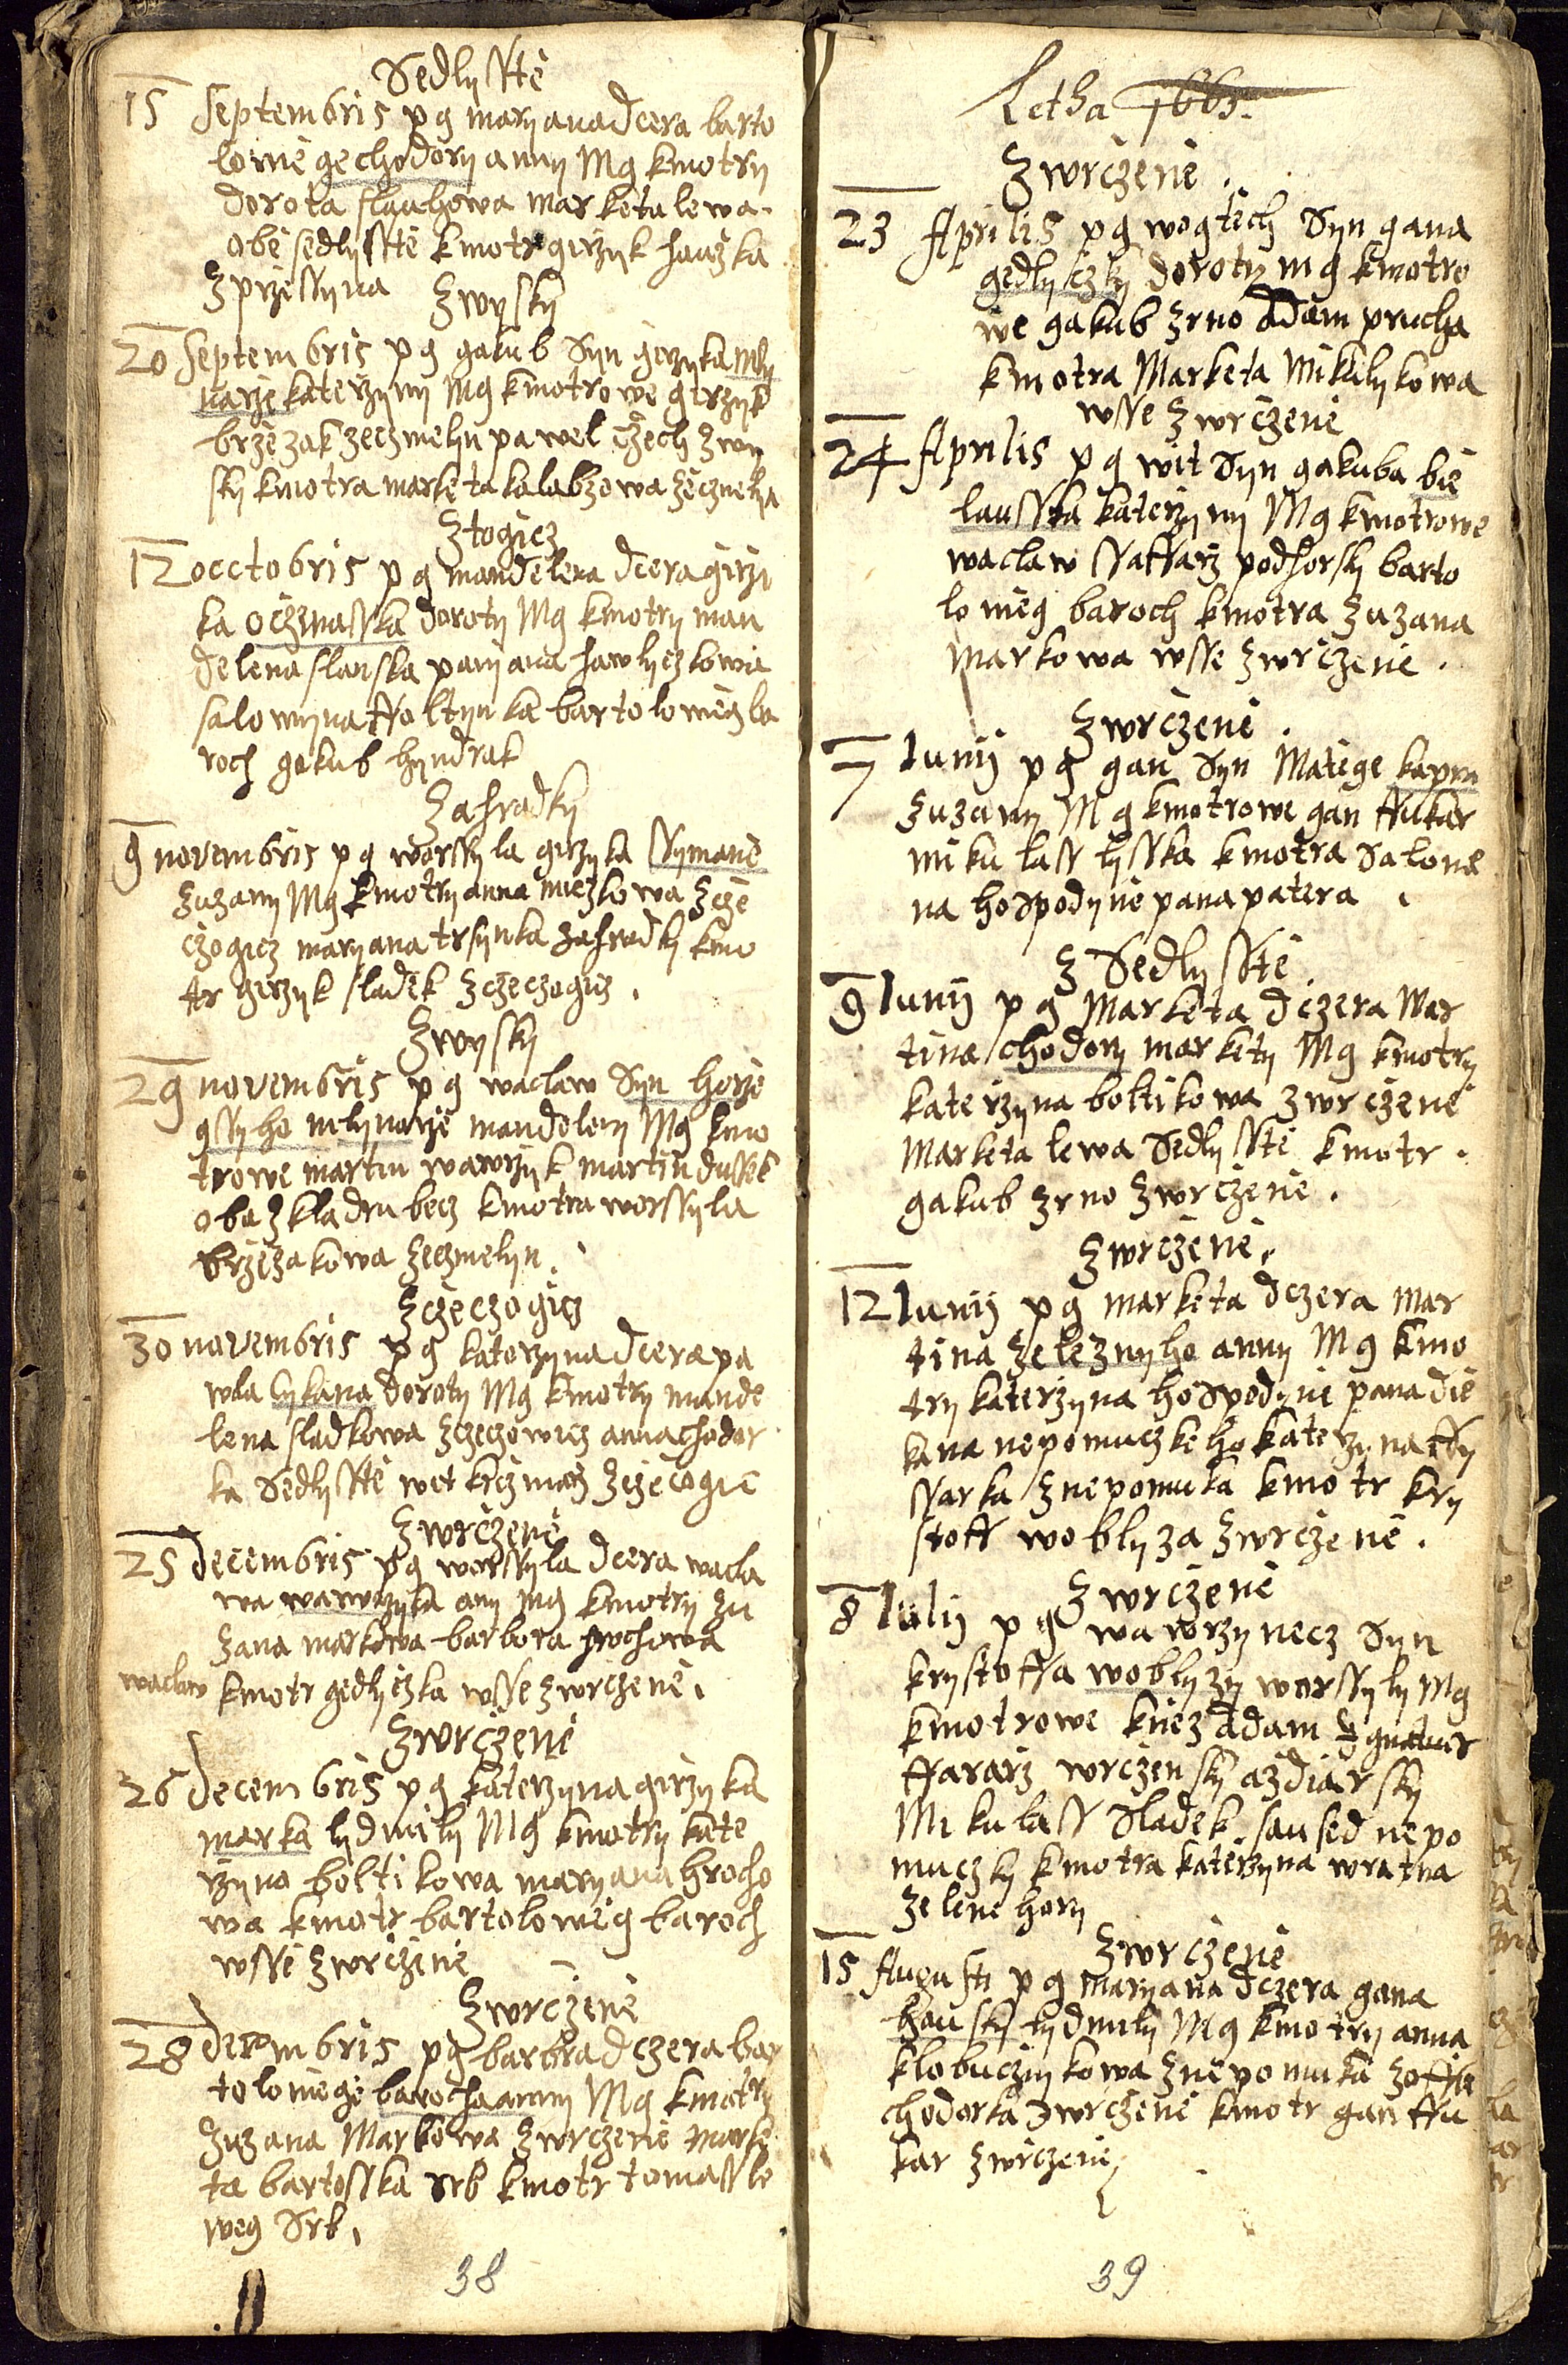 Sedlysstě
15 Septembris p g maryana dcera barto
loměge chodory anny Mg kmotry
dorota slauhowa marketa lewa.
obě sedlysstě kmotr girzyk hauzka
z przessyna
Zwysky
20 Septembris p g gakub Syn girzyka mly
narze katerzyny Mg kmotrowe girzyk
brzezak zeczmelyn pawel czech zwy
sky kmotra marketa kalabzowa zeczmelyn
Ztogicz
12 occtobris p g mandelena dcera girzi
ka oczmasska doroty Mg kmotry man
delena slanska panj ana hawlyczkowa
salomyna ffoltynka bartolomig ba
roch gakub hyndrak
Zahradky
9 novembris p g worssyla girzyka ssymane
zuzany Mg kmotry anna miczkowa zcze
czogicz maryana trsynka zahradky kmo
tr girzyk sladek zczeczogicz.
Zwysky
29 novembris p g waclaw Syn horze
gssyho mlynarze mandeleny Mg kmo
trowe martin wawrzyk martin dussek
oba z kladrubecz kmotra worssyla
brzezakowa zeczmelyn.
Zczeczogicz
30 novembris p g katerzyna dcera pa
wla Cykana doroty Mg kmotry mande
lena sladkowa zczeczowicz anna chodor
ka Sedlysstě wet krczmarz zczecogic
Zwrczeně
25 decembris p g worssyla dcera wacla
wa wawrzyka any Mg kmotry zu
zana markowa barbora hrochowa
waclaw kmotr gedlyczka wsse zwrczeně.
Zwrczeně
26 decembris p g katerzyna girzyka
marka lydmily Mg kmotry kate
rzyna boltikowa maryana hrocho
wa kmotr bartolomig baroch
wsse zwrczeně
Zwrczeně
28 decembris p g barbora dczera bar
toloměge barocha anny Mg kmotry
zuzana Markowa zwrczeně marke
ta bartosska srb kmotr tomass le
weg Srb.
38
Letha 1665.
Zwrczeně.
23 Aprilis p g wogtěch Syn gana
gedlyczky doroty mg kmotro
we gakub zrno Adam prucha
kmotra Marketa Mikulykowa
wsse zwrczeně
24 Aprilis p g wit Syn gakuba bie
lausska katerzyny Mg kmotrowe
waclaw ssaffarz podhorsky barto
lomeg baroch kmotra zuzana
Markowa wsse zwrczeně.
Zwrczeně.
7 Iunij p g gan Syn Matěge kapru
zuzany Mg kmotrowe gan ffukar
mikulass lysska kmotra Salome
na hospodyně pana patera.
Z Sedlysstě
9 Iunij p g Marketa dczera Mar
tina chodory markety Mg kmotry
katerzyna boltikowa zwrczeně
Marketa lewa Sedlysstě kmotr.
gakub zrno zwrczeně.
Zwrczeně.
12 Iunij p g marketa dczera mar
tina zeleznyho anny Mg kmo
try katerzyna hospodyně pana die
kana nepomuczkeho katerzyna ffy
ssarka z nepomuka kmotr kry
stoff woblyza zwrczeně.
Zwrczeně
8 Iulij p g wawrzynecz Syn
krystoffa woblyzy worssyly Mg
kmotrowe kněz Adam
ffararz wrczensky a zdiarsky
Mikulass Sladek saused nepo
muczky kmotra katerzyna wratna
zelene hory
Zwrczeně
15 Augusti p g maryana dczera gana
hausky lydmily Mg kmotry anna
klobucznykowa z nepomuka zoffia
chodorka zwrczeně kmotr gan ffu
kar zwrczeně
39